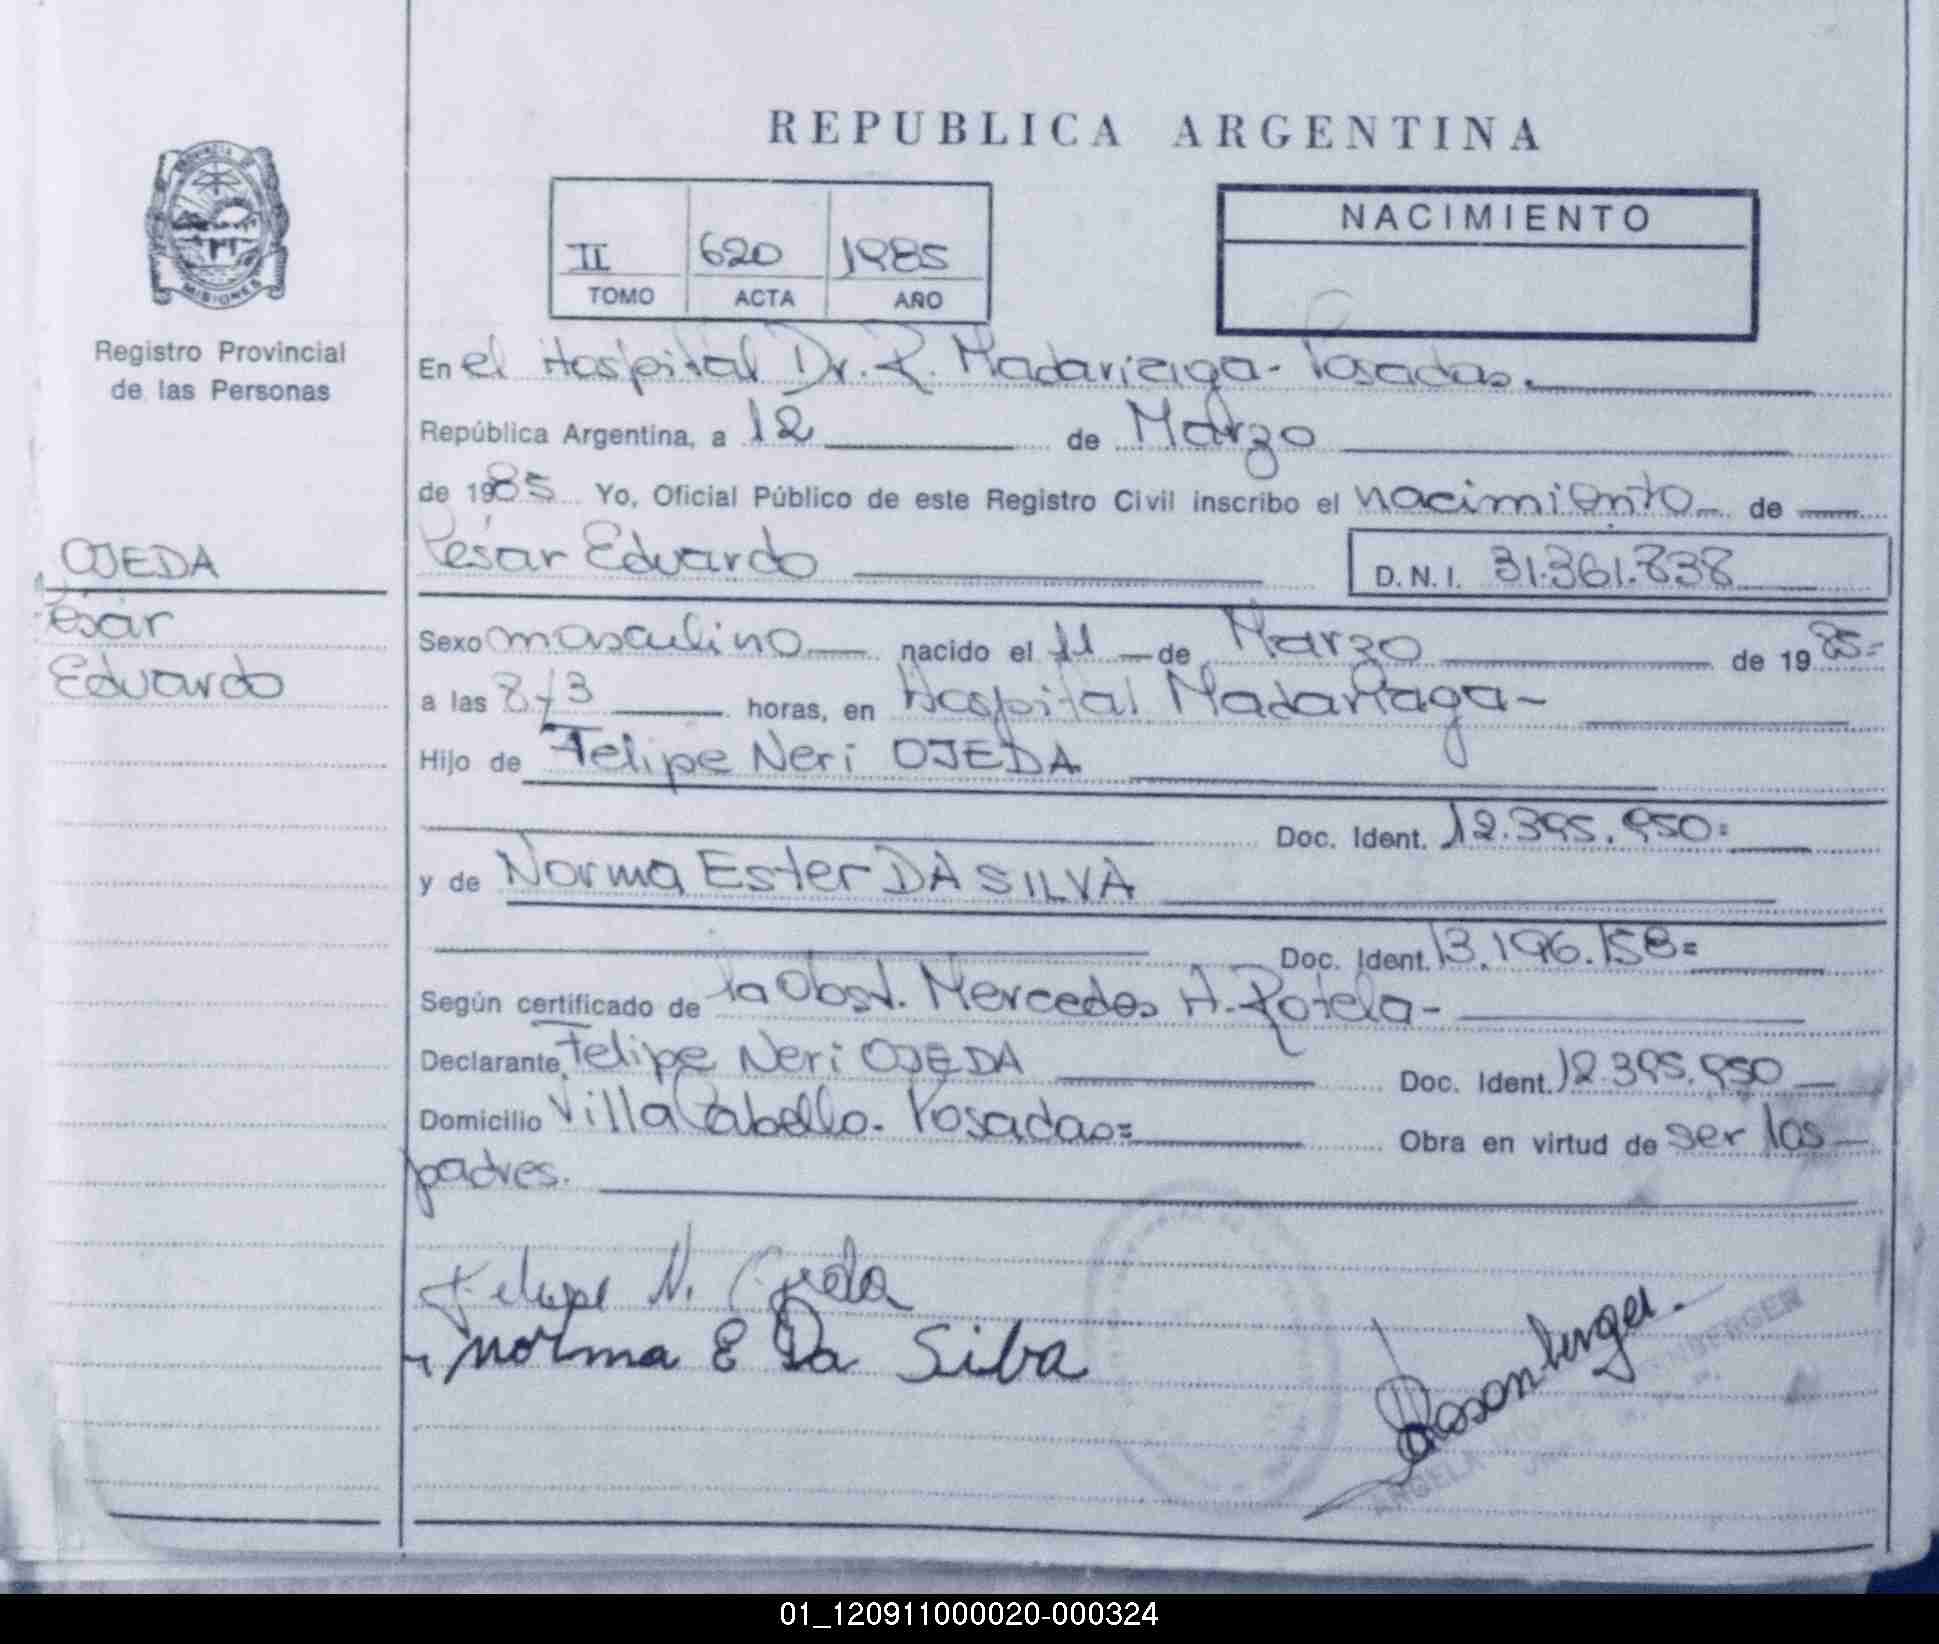 REPUBLICA ARGENTINA
PROVINCIA DE
MISIONES
Registro Provincial
de las Personas
II 620 1985
TOMO ACTA AÑO
NACIMIENTO
En el Hospital Dr. R. Madariaga - Posadas.
República Argentina, a 12 de Marzo
de 1985 Yo, Oficial Público de este Registro Civil inscribo el nacimiento de
OJEDA
César
Eduardo
César Eduardo
D.N.I. 31.361.838
Sexo masculino nacido el 11 de Marzo de 1985=
a las horas, en Hospital Madariaga-
Hijo de Felipe Neri OJEDA
Doc. Ident. 12.395.950=
y de Norma Ester DA SILVA
Doc. Ident. 13.196.158=
Según certificado de la Obst. Mercedes A. Rotela-
Declarante Felipe Neri OJEDA Doc. Ident. 12.395.950
Domicilio Villa Cabello. Posadas= Obra en virtud de ser los
padres.
Felipe N. Ojeda
Norma E Da Silva
Rosenberger.
ANGELA
01_120911000020-000324